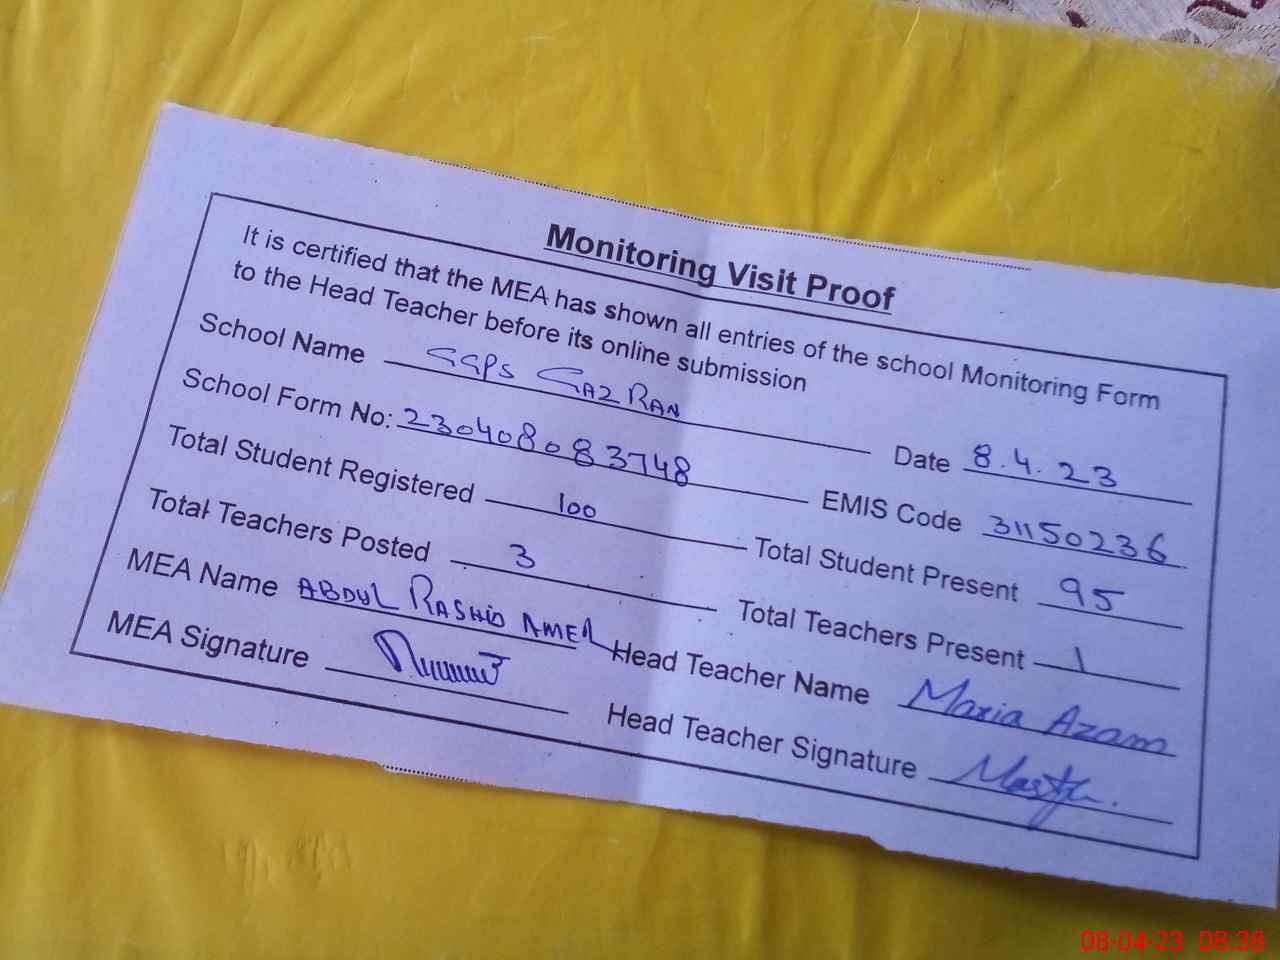 Monitoring Visit Proof
It is certified that the MEA has shown all entries of the school Monitoring Form
to the Head Teacher before its online submission
School Name GGPS GAZRAN Date 8.4.23
School Form No: 230408083748 EMIS Code 31150236
Total Student Registered 100 Total Student Present 95
Total Teachers Posted 3 Total Teachers Present 1
MEA Name ABDUL RASHID AMER Head Teacher Name Maria Azam
MEA Signature Head Teacher Signature
08-04-23 08:38